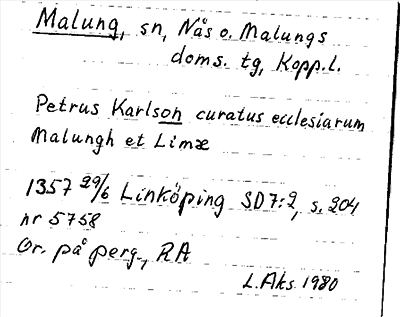 Malung, sn, Nås o. Malungs
doms. tg, Kopp.l.
Petrus Karlson curatus ecclesiarum
Malungh et Limæ
1357 29/6 Linköping SD7:2, s. 204
nr 5758
Or. på perg., RA
L.Aks 1980